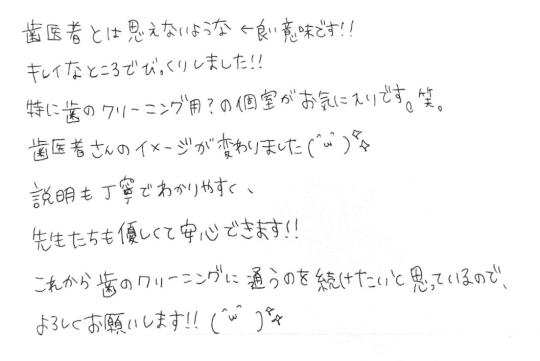 歯医者とは思えないような ←良い意味です!!
キレイなところでびっくりしました!!
特に歯のクリーニング用?の個室がお気に入りです。笑。
歯医者さんのイメージが変わりました(^ω^)☆☆
説明も丁寧でわかりやすく、
先生たちも優しくて安心できます!!
これから歯のクリーニングに通うのを続けたいと思っているので、
よろしくお願いします!! (^ω^)☆☆